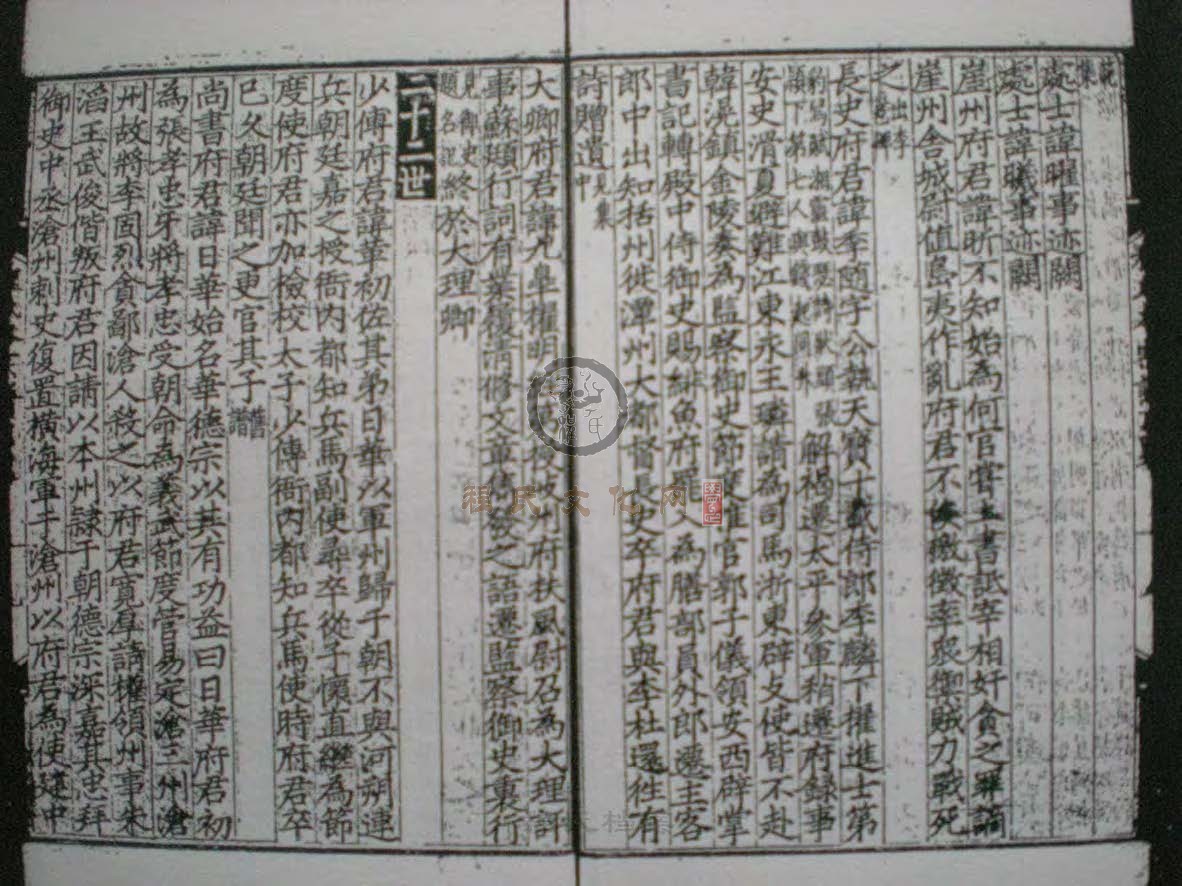 處士諱曜事迹闕
處士諱曦事迹闕
崖州府君諱昕不知始為何官嘗上書詆宰相奸貪之罪謫
崖州舍城尉值島夷作亂府君不俟檄徵率衆禦賊力戰死
之
長史府君諱季隨字公 天寶十載侍郎李麟下擢進士第
解褐選太平參軍稍遷府錄事
安史滑夏避難江東永王璘請為司馬浙東辟攴使皆不赴
韓滉鎮金陵奏為監察御史節度推官郭子儀領安西辟掌
書記轉殿中侍御史賜緋魚府罷入為膳部員外郎遷主客
郎中出知括州徙潭州大都督長史卒府君與李杜還往有
詩贈遺
大卿府君諱元皐擢明 授 州府扶風尉召為大理評
事蘇頲行詞有業履清修文章 發之語遷監察御史裏行
見御史題名記 終於大理卿
二十二世
少傅府君諱華初佐其弟日華以軍州歸于朝不與河朔連
兵朝廷嘉之授衙内都知兵馬副使尋卒從子懷直繼為節
度使府君亦加檢校太子少傅衙内都知兵馬使時府君卒
已久朝廷聞之更官其子 舊譜
尚書府君諱日華始名華德宗以其有功益曰日華府君初
為張孝忠牙將孝忠受朝命為義武節度管易定滄三州滄
州故將李固烈貪鄙滄人殺之以府君寬厚請權領州事朱
滔王武俊偕叛府君因請以本州隷于朝德宗深嘉其忠拜
御史中丞滄州刺史復置橫海軍于滄州以府君為使建中
程氏文化网